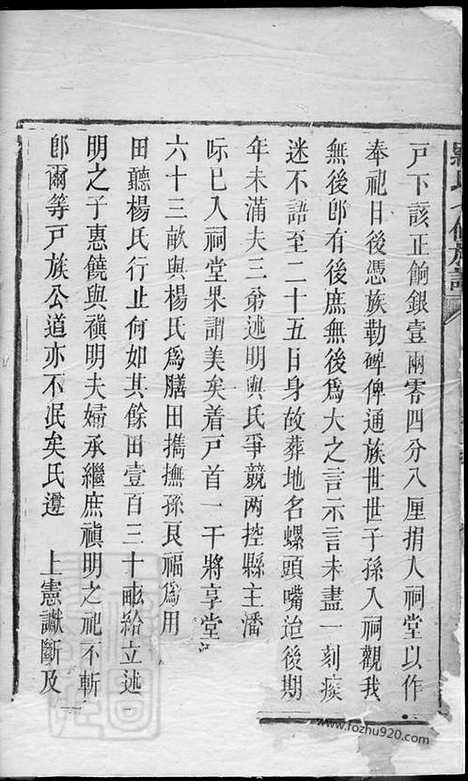 戸下該正餉銀壹兩零四分八厘捐入祠堂以作
奉祀日後憑族勒碑俾通族世世子孫入祠觀我
無後卽有後庶無後爲大之言示言未盡一刻痰
迷不語至二十五日身故葬地名螺頭嘴治後期
年未滿夫三爺述明與氏爭競兩控縣主潘
际已入祠堂果謂美矣着戸首一干將享堂
六十三畝與楊氏爲膳田擕撫孫艮福爲用
田聽楊氏行止何如其餘田壹百三十畝給立述
明之子惠饒與禎明夫婦承繼庶禎明之祀不斬
卽爾等戸族公道亦不泯矣氏遵 上憲讞斷及
www.fozhu920.com